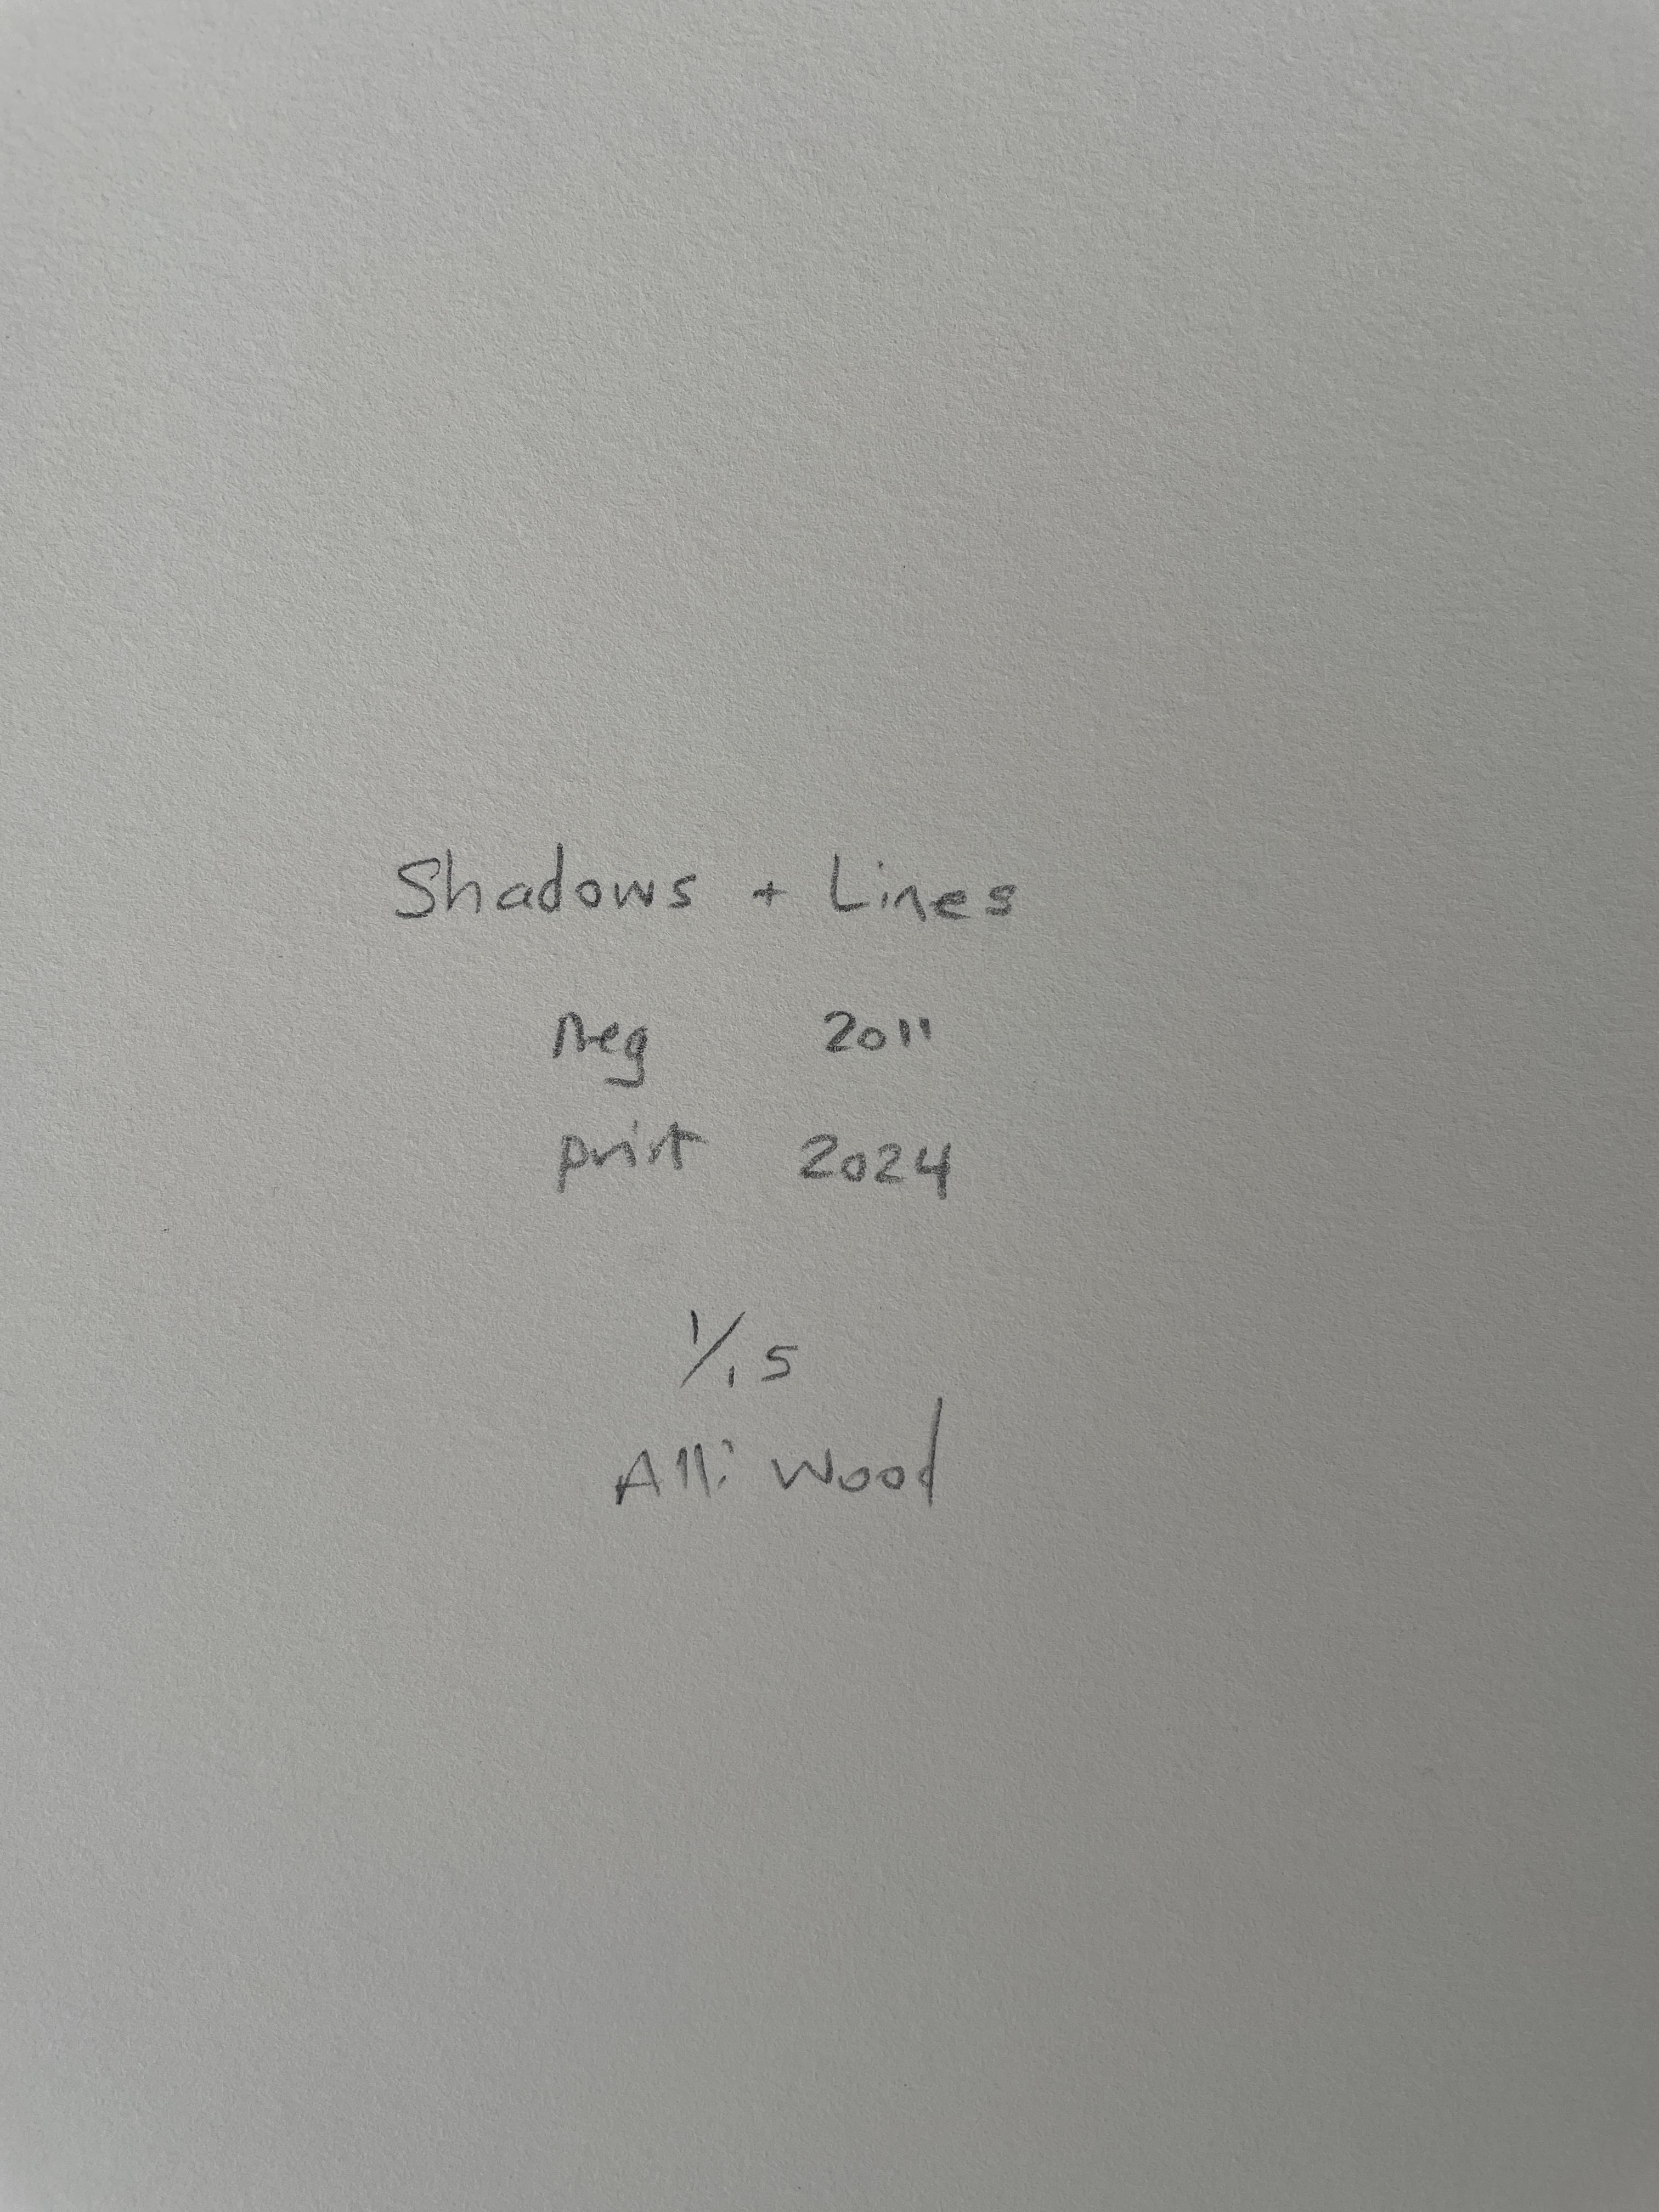 Shadows + Lines
Neg 2011
print 2024
1/15
Alli Wood